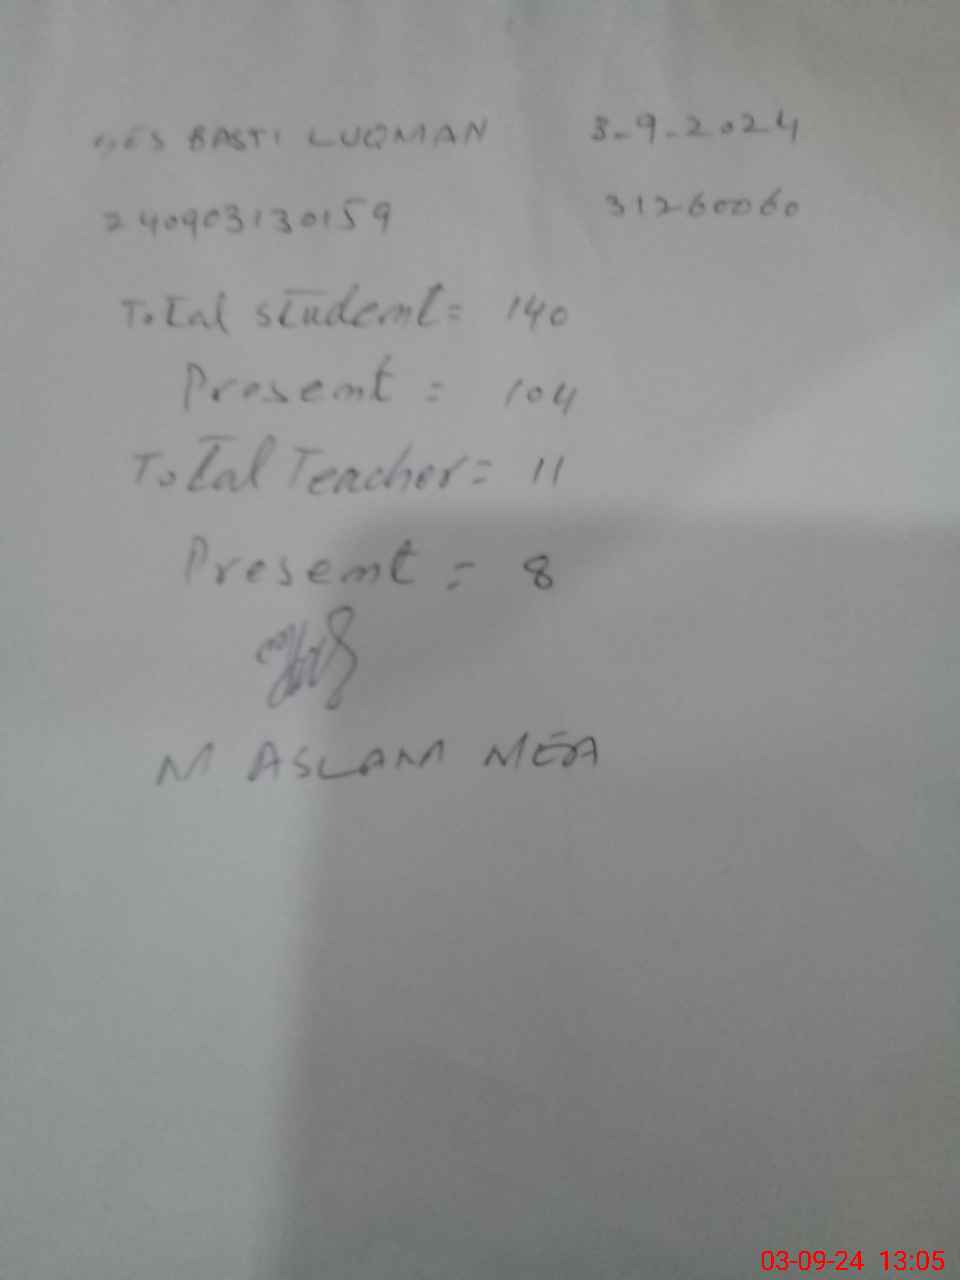 GES BASTI LUQMAN 3-9-2024
240903130159 31260060
Total student = 140
Present = 104
Total Teacher = 11
Present = 8
M ASLAM MEA
03-09-24 13:05